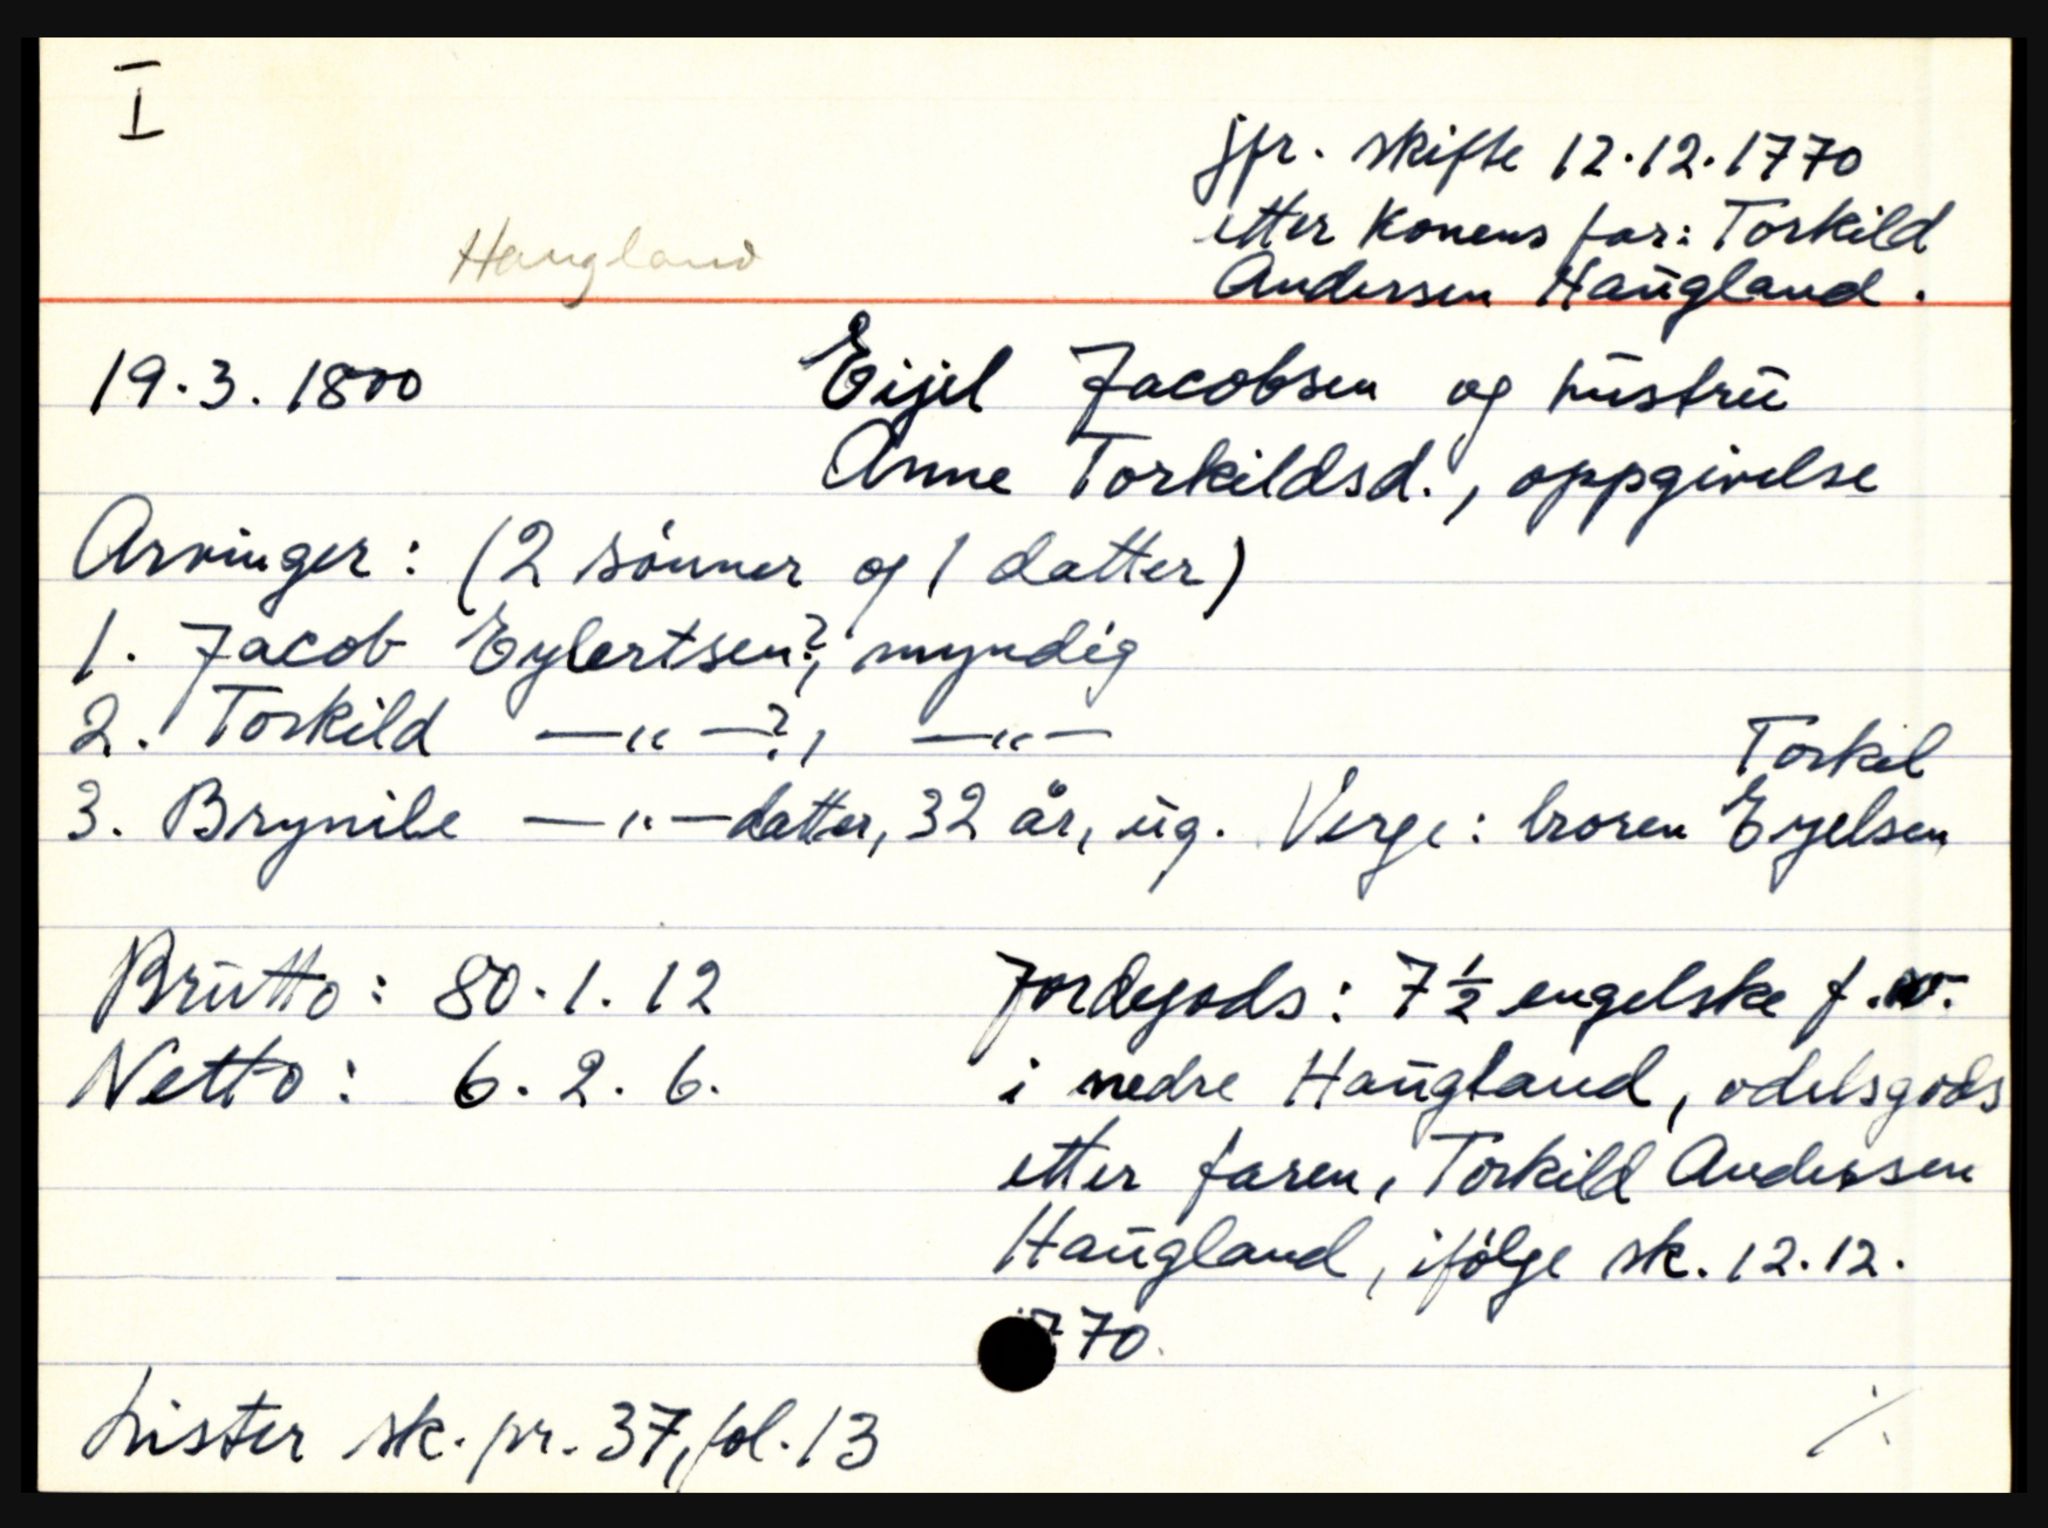 I
jfr. skifte 12.12.1770
etter konens far: Torkild
Andersen Haugland.
Haugland
19.3.1800 Eijel Jacobsen og hustru
Anne Torkildsd., oppgivelse
Arvinger: (2 sønner og 1 datter)
1. Jacob Eylertsen?, myndig
2. Torkild —"—?, —"—
Torkil
3. Brynile —"—datter, 32 år, ug. Verge: broren Eyelsen
Brutto: 80.1.12 Jordegods: 7½ engelske f.
Netto: 6.2.6. i nedre Haugland, odelsgods
etter faren, Torkild Andersen
Haugland, ifølge sk. 12.12.
770.
Lister sk. pr. 37, fol. 13 ·/.